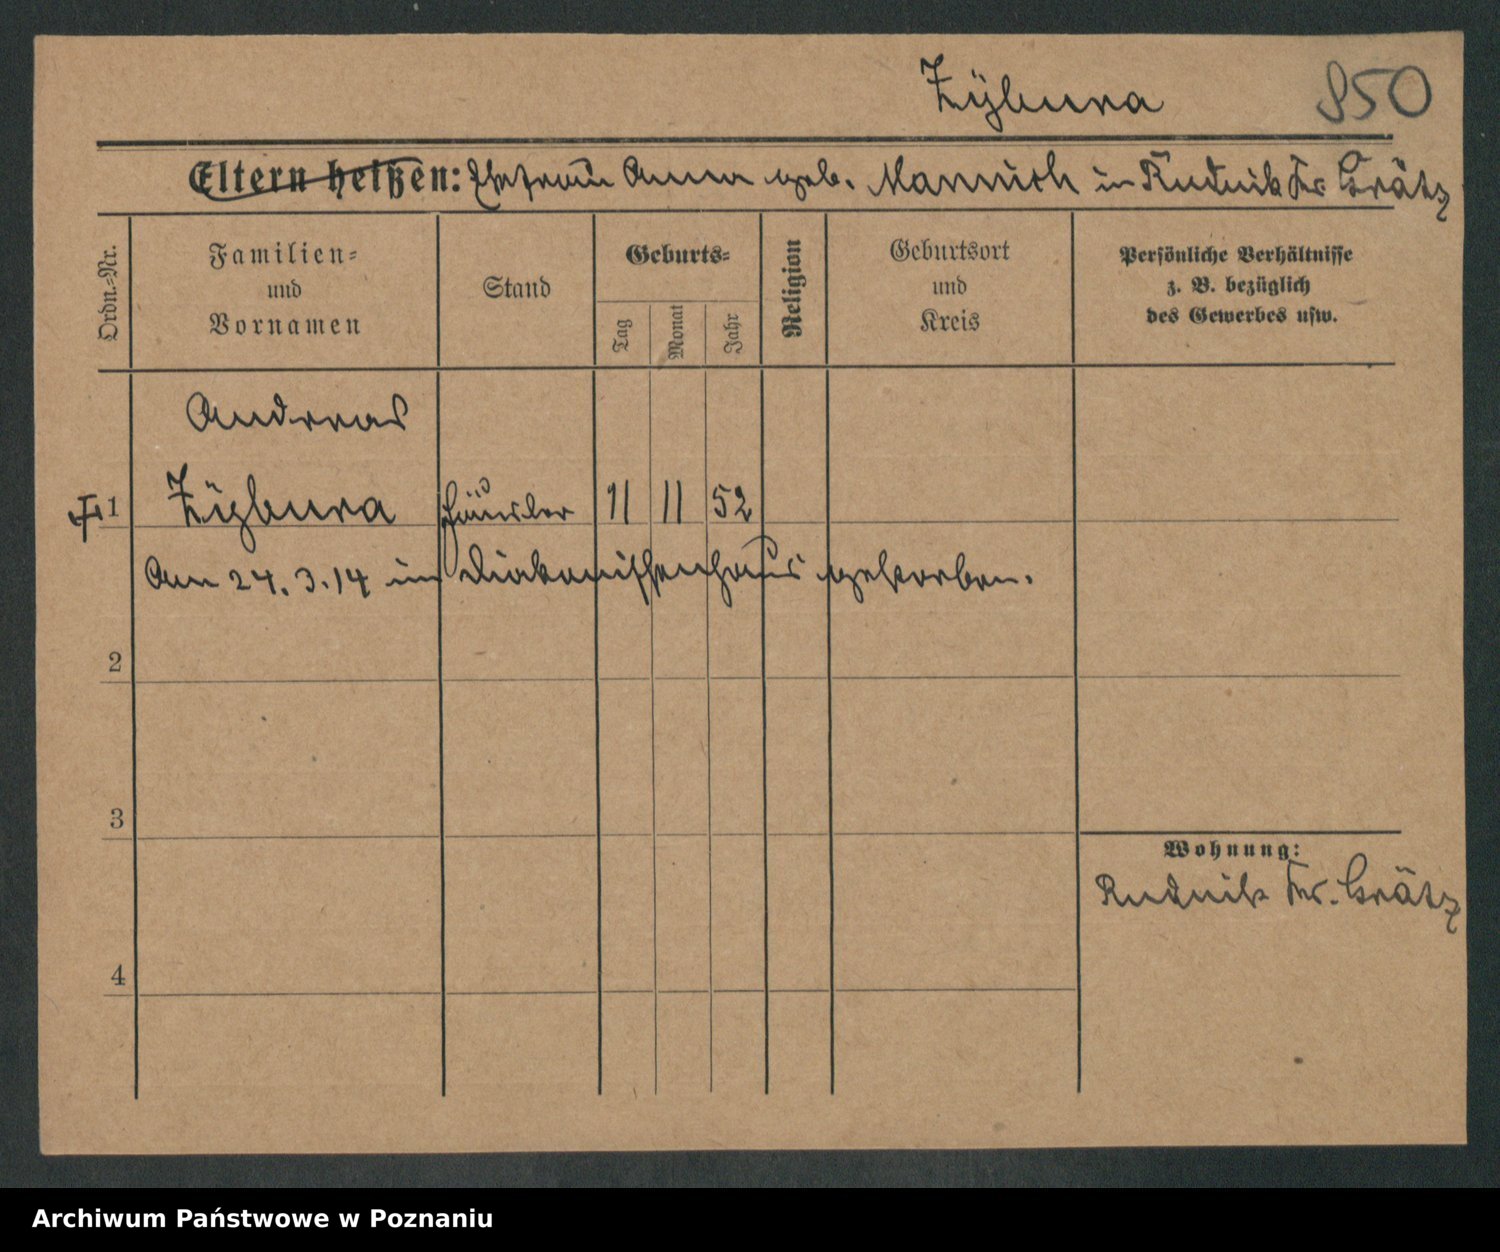 Zÿbura
850
Eltern heißen: Ehefrau Anna geb. Mannich in Rudnik Kr. Grätz
Ordn.-Nr.
Familien-
und
Vornamen
Stand
Geburts-
Tag
Monat
Jahr
Religion
Geburtsort
und
Kreis
Persönliche Verhältnisse
z. B. bezüglich
des Gewerbes usw.
Andreas
1 Zÿbura Häusler 11 11 52
Am 24. 3. 14 im Diakonissenhaus gestorben.
2
3
Wohnung:
Rudnik Kr. Grätz
4
Archiwum Państwowe w Poznaniu